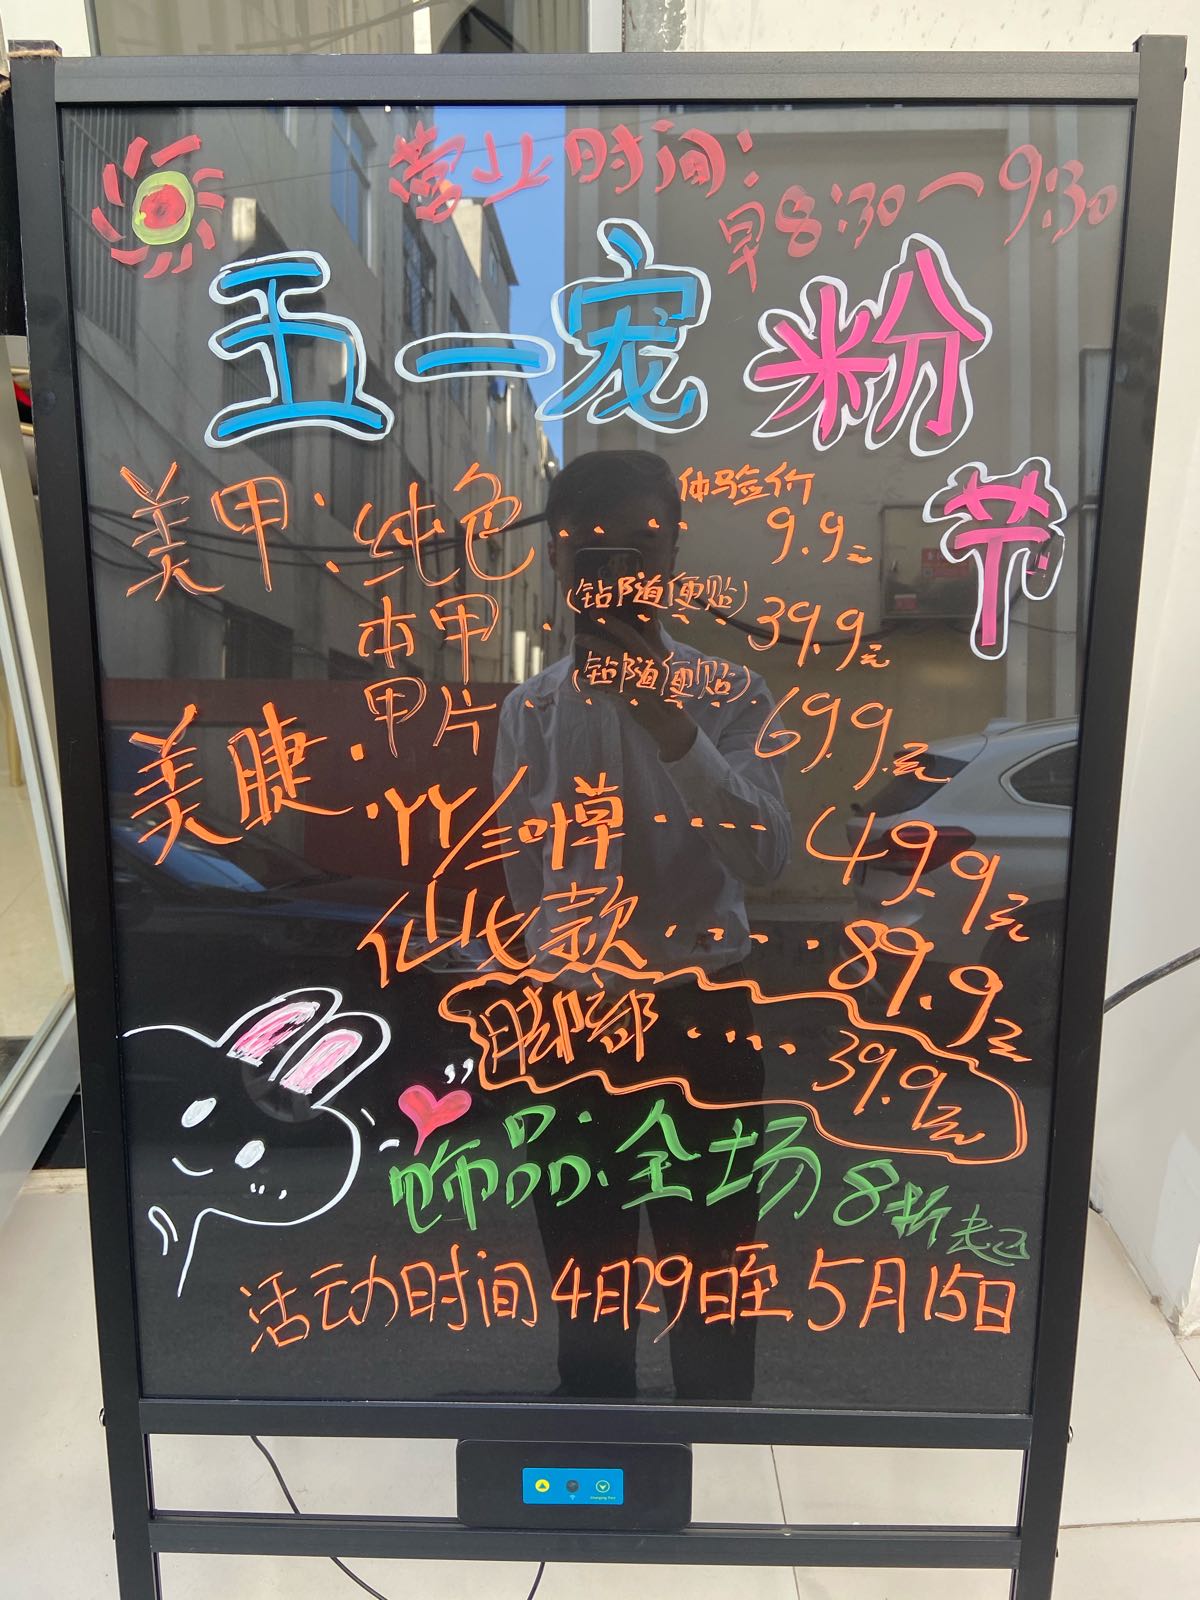 营业时间:
早8:30一9:30
五一宠粉节
美甲:纯色.... 体验价 9.9元
本甲.(钻随便贴)....39.9元
甲片.(钻随便贴).....69.9元
美睫.YY/三叶草....49.9元
仙女款.....89.9元
脚部....39.9元
饰品:全场8折起
活动时间4月29日至5月15日